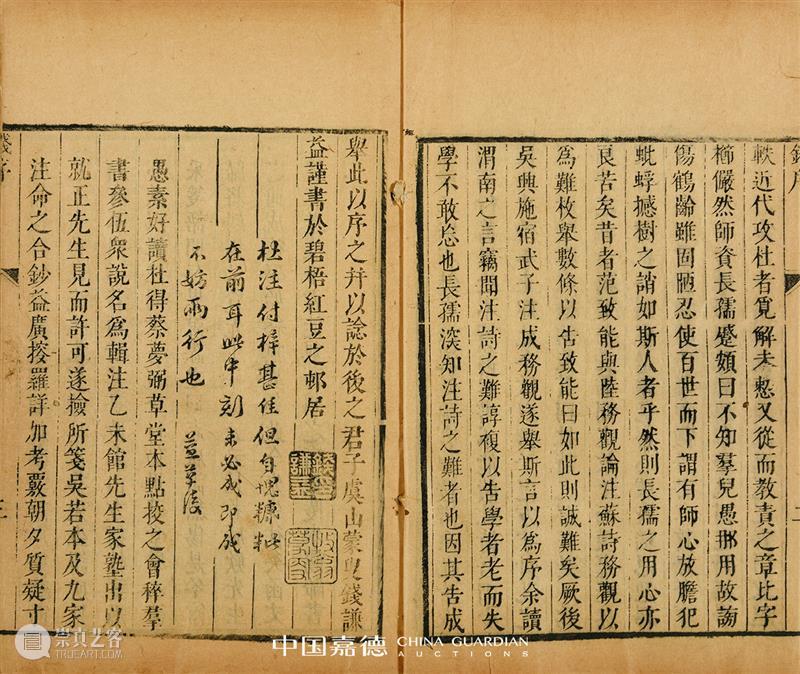 軼近代攻杜者覓解未愨又從而教責之章比字
櫛儼然師資長孺蹙頞曰不知羣兒愚那用故謗
傷鶴齡雖固陋忍使百世而下謂有師心放膽犯
蚍蜉撼樹之誚如斯人者乎然則長孺之用心亦
良苦矣昔者范致能與陸務觀論注蘇詩務觀以
為難枚舉數條以告致能曰如此則誠難矣厥後
吳興施宿武子注成務觀遂舉斯言以為序余讀
渭南之言竊聞注詩之難諄複以告學者老而失
學不敢忘也長孺深知注詩之難者也因其告成
舉此以序之并以諗於後之君子虞山蒙叟錢謙
益謹書於碧梧紅豆之邨居
杜注付梓甚佳但自愧糠粃
在前耳此中刻未必成即成
不妨兩行也
益草復
愚素好讀杜得蔡夢弼草堂本點挍之會稡羣
書參伍衆說名為輯注乙未館先生家塾出以
就正先生見而許可遂撿所箋吳若本及九家
注命之合鈔益廣搜羅詳加考覈朝夕質疑寸
三
崇真艺客
TRUEART.COM
中国嘉德
CHINA GUARDIAN
AUCTIONS